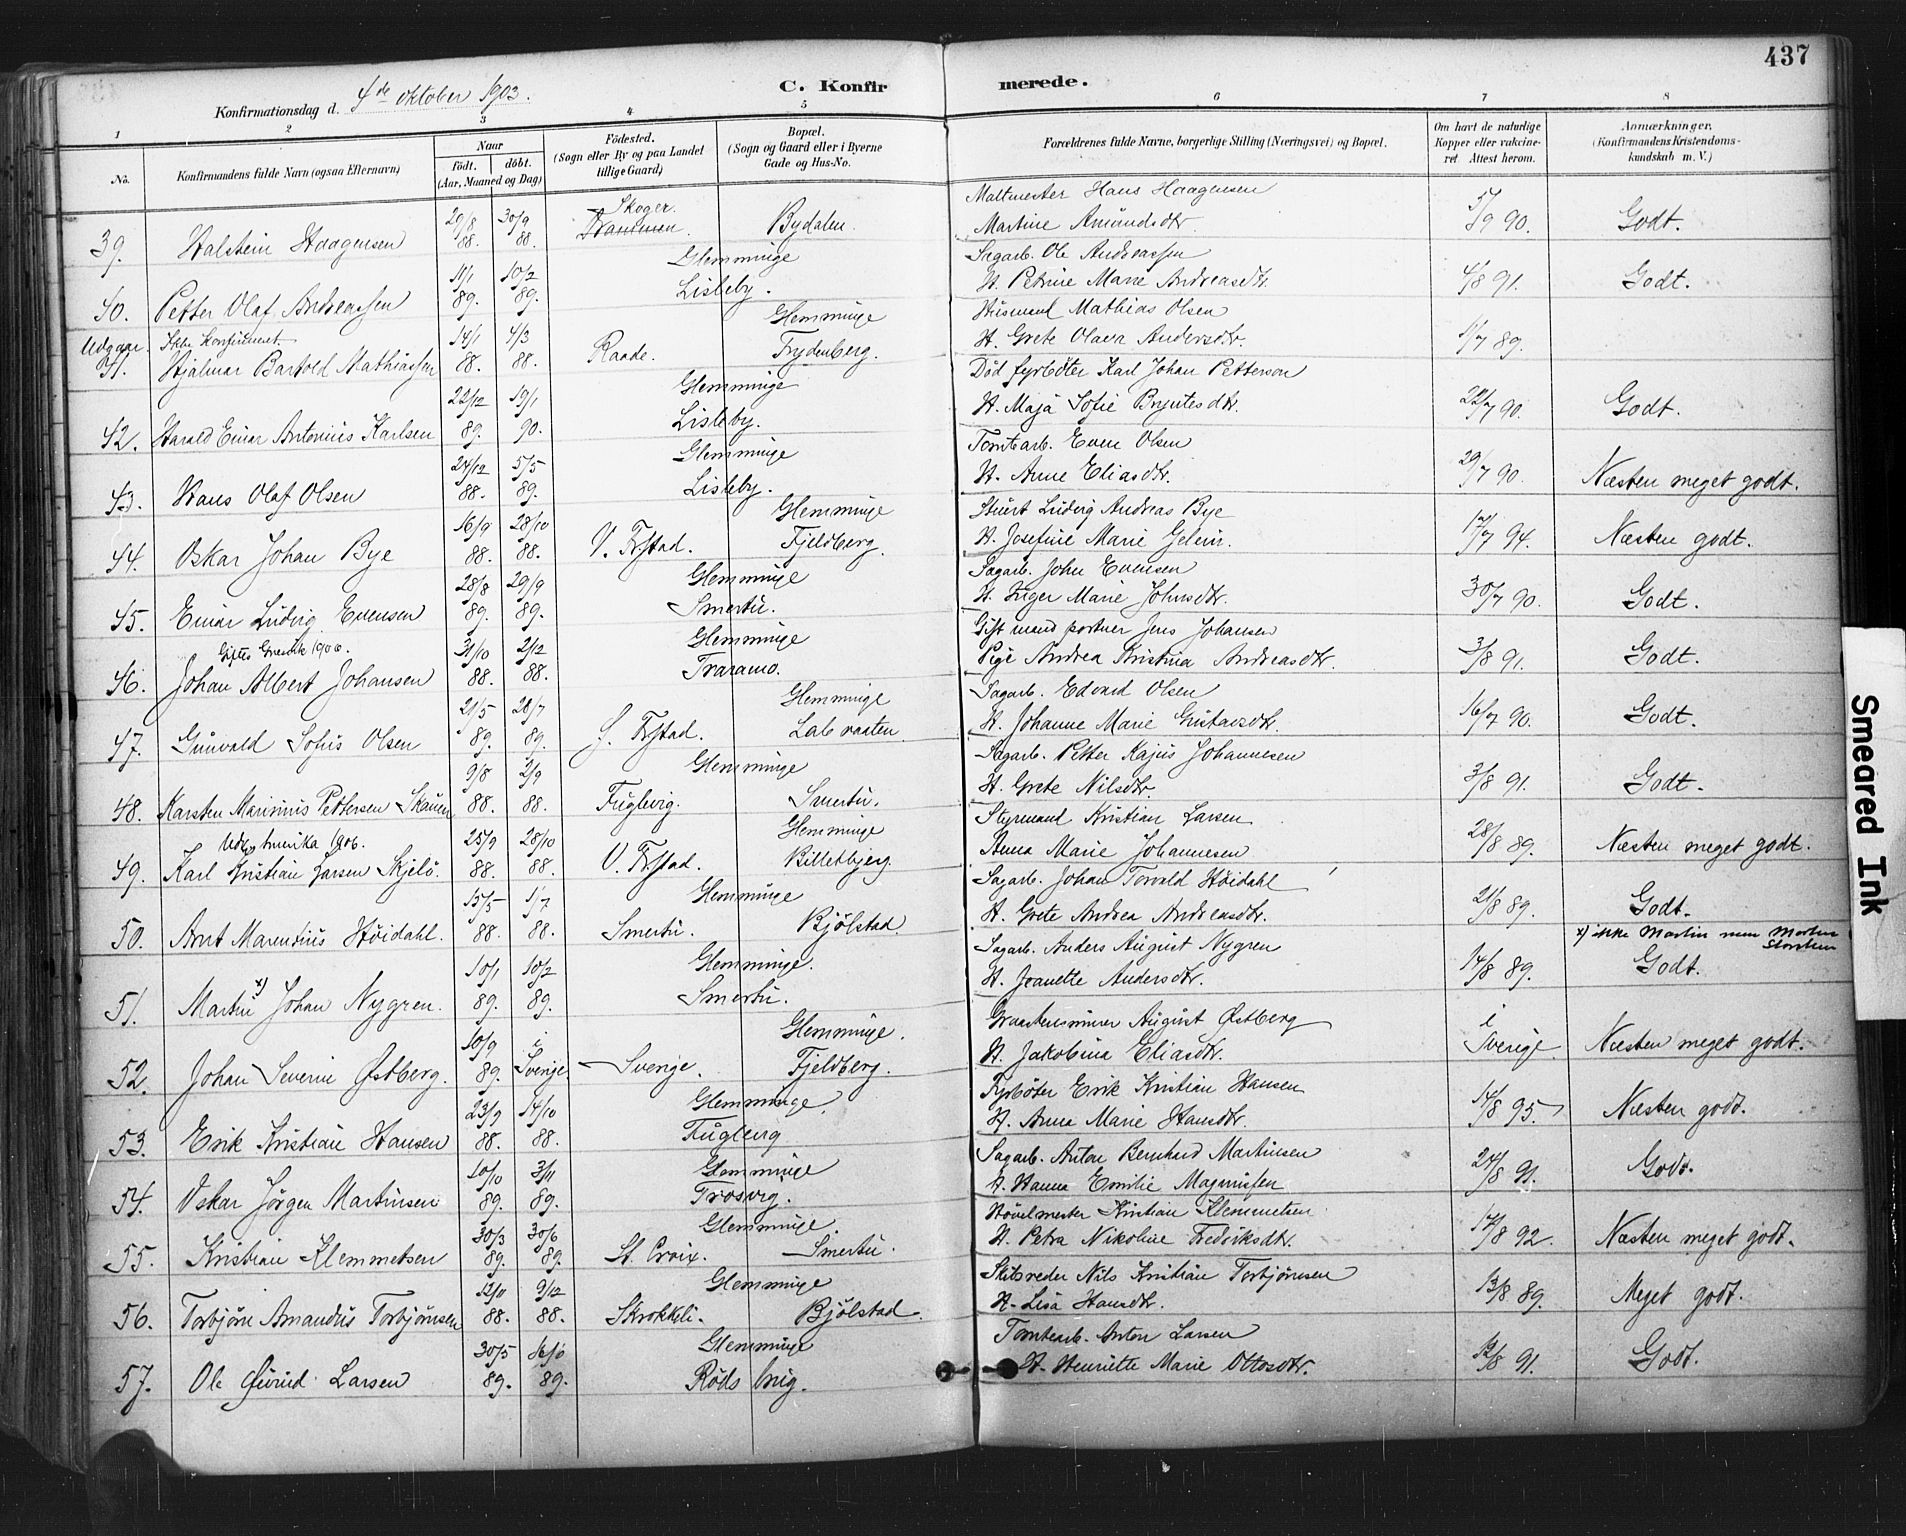 437
C. Konfirmerede.
Konfirmationsdag d. 4de oktober 1903.
1 2 3 4 5 6 7 8
No. Konfirmandens fulde Navn (ogsaa Efternavn) Naar født. døbt. (Aar, Maaned og Dag) Fødested. (Sogn eller By og paa Landet tillige Gaard) Bopæl. (Sogn og Gaard eller i Byerne Gade og Hus-No. Forældrenes fulde Navne, borgerlige Stilling (Næringsvei) og Bopæl. Om havt de naturlige Kopper eller vakcineret Attest herom. Anmærkninger. (Konfirmandens Kristendomskundskab m. V.)
39. Halstein Haagensen 29/8 88. 30/9 88. Skoger. Drammen. Bydalen. Maltmester Hans Haagensen
Martine Amundsdtr. 5/9 90. Godt.
40. Petter Olaf Andreassen 11/1 89. 10/2 89. Glemminge Lisleby. Sagarb. Ole Andreassen
H. Petrine Marie Andreasdtr. 4/8 91. Godt.
Udgaar. Ikke konfirmeret
41. Hjalmar Bartold Mathiassen 14/1 88. 4/3 88. Raade. Glemminge Frydenberg. Husmand Mathias Olsen
H. Grete Olava Andersdtr. 1/7 89.
42. Harald Einar Antonius Karlsen 22/12 89. 19/1 90. Glemminge Lisleby. Død fyrbøter Karl Johan Petterson
H. Maja Sofie Bryntesdtr. 22/7 90. Godt.
43. Hans Olaf Olsen 24/12 88. 5/5 89. Glemminge Lisleby. Tomtearb. Even Olsen
H. Anne Eliasdtr. 29/7 90. Næsten meget godt.
44. Oskar Johan Bye 16/9 88. 28/10 88. V. Frstad. Glemminge Fjeldberg. Stuert Ludvig Andreas Bye
H. Josefine Marie 17/7 94. Næsten godt.
45. Einar Ludvig Evensen 28/8 89. 29/9 89. Glemminge Smertu. Sagarb. John Evensen
H. Inger Marie Johnsdtr. 30/7 90. Godt.
1906.
46. Johan Albert Johansen 31/10 88. 2/12 88. Glemminge Traramo. Gift mand portner Jens Johansen
Pige Andrea Kristina Andreasdtr. 3/8 91. Godt.
47. Gunvald Sofus Olsen 21/5 89. 28/7 89. G. Frstad. Glemminge Labraaten Sagarb. Edvard Olsen
H. Johanne Marie Gustavsdtr. 16/7 90. Godt.
48. Karsten Marinius Pettersen Skauen 9/8 88. 2/9 88. Fuglevig. Glemminge Smertu. Sagarb. Petter Kajus Johannesen
H. Grete Nilsdtr. 3/8 91. Godt.
Udv. Amerika 1906.
49. Karl Kristian Larsen Skjelø. 25/9 88. 28/10 88. V. Frstad. Glemminge Billetbjerg. Styrmand Kristian Larsen
Anna Marie Johannesen 28/8 89. Næsten meget godt.
50. Arnt Marentius Høidahl. 15/5 88. 1/7 88. Smertu. Glemminge Bjølstad Sagarb. Johan Torvald Høidahl
H. Grete Andrea Andreasdtr. 21/8 89. Godt.
x) ikke Martin men Morten
51. Martin x) Johan Nygren. 10/1 89. 10/2 89. Glemminge. Smertu. Sagarb. Anders August Nygren
H. Jeanette Andersdtr. 14/8 89. Godt.
52. Johan Severin Østberg. 10/9 89. i Sverige. Sverige. Glemminge. Fjeldberg. Graastensmurer August Østberg
H. Jakobina Eliasdtr. i Sverige Næsten meget godt.
53. Erik Kristian Hansen 23/9 88. 14/10 88. Glemminge. Fuglevig Fyrbøter Erik Kristian Hansen
H. Anna Marie Hansdtr. 14/8 95. Næsten godt.
54. Oskar Jørgen Martinsen 10/10 89. 3/11 89. Glemminge Trosvig. Sagarb. Anton Bernhard Martinsen
H. Hanna Emilie Magnussen 24/8 91. Godt.
55. Kristian Klemmetsen 30/3 89. 30/6 89. St. Croix. Glemminge. Smertu. Høvelmester Kristian Klemmetsen
H. Petra Nikoline Fredriksdtr. 14/8 92. Næsten meget godt.
56. Torbjørn Amandus Torbjørnsen 12/11 88. 9/12 88. Skrokkeli. Glemminge Bjølstad. Skibsreder Nils Kristian Torbjørnsen
H. Lisa Hansdtr. 13/8 89. Meget godt.
57. Ole Øivind Larsen 30/5 89. 89. Glemminge Røds brug. Tomtearb. Anton Larsen
H. Henriette Marie Ottosdtr. 12/8 91. Godt.
Smeared Ink